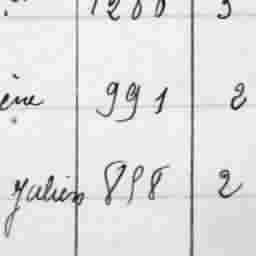 1200 3
ène 991 2
Julien 898 2